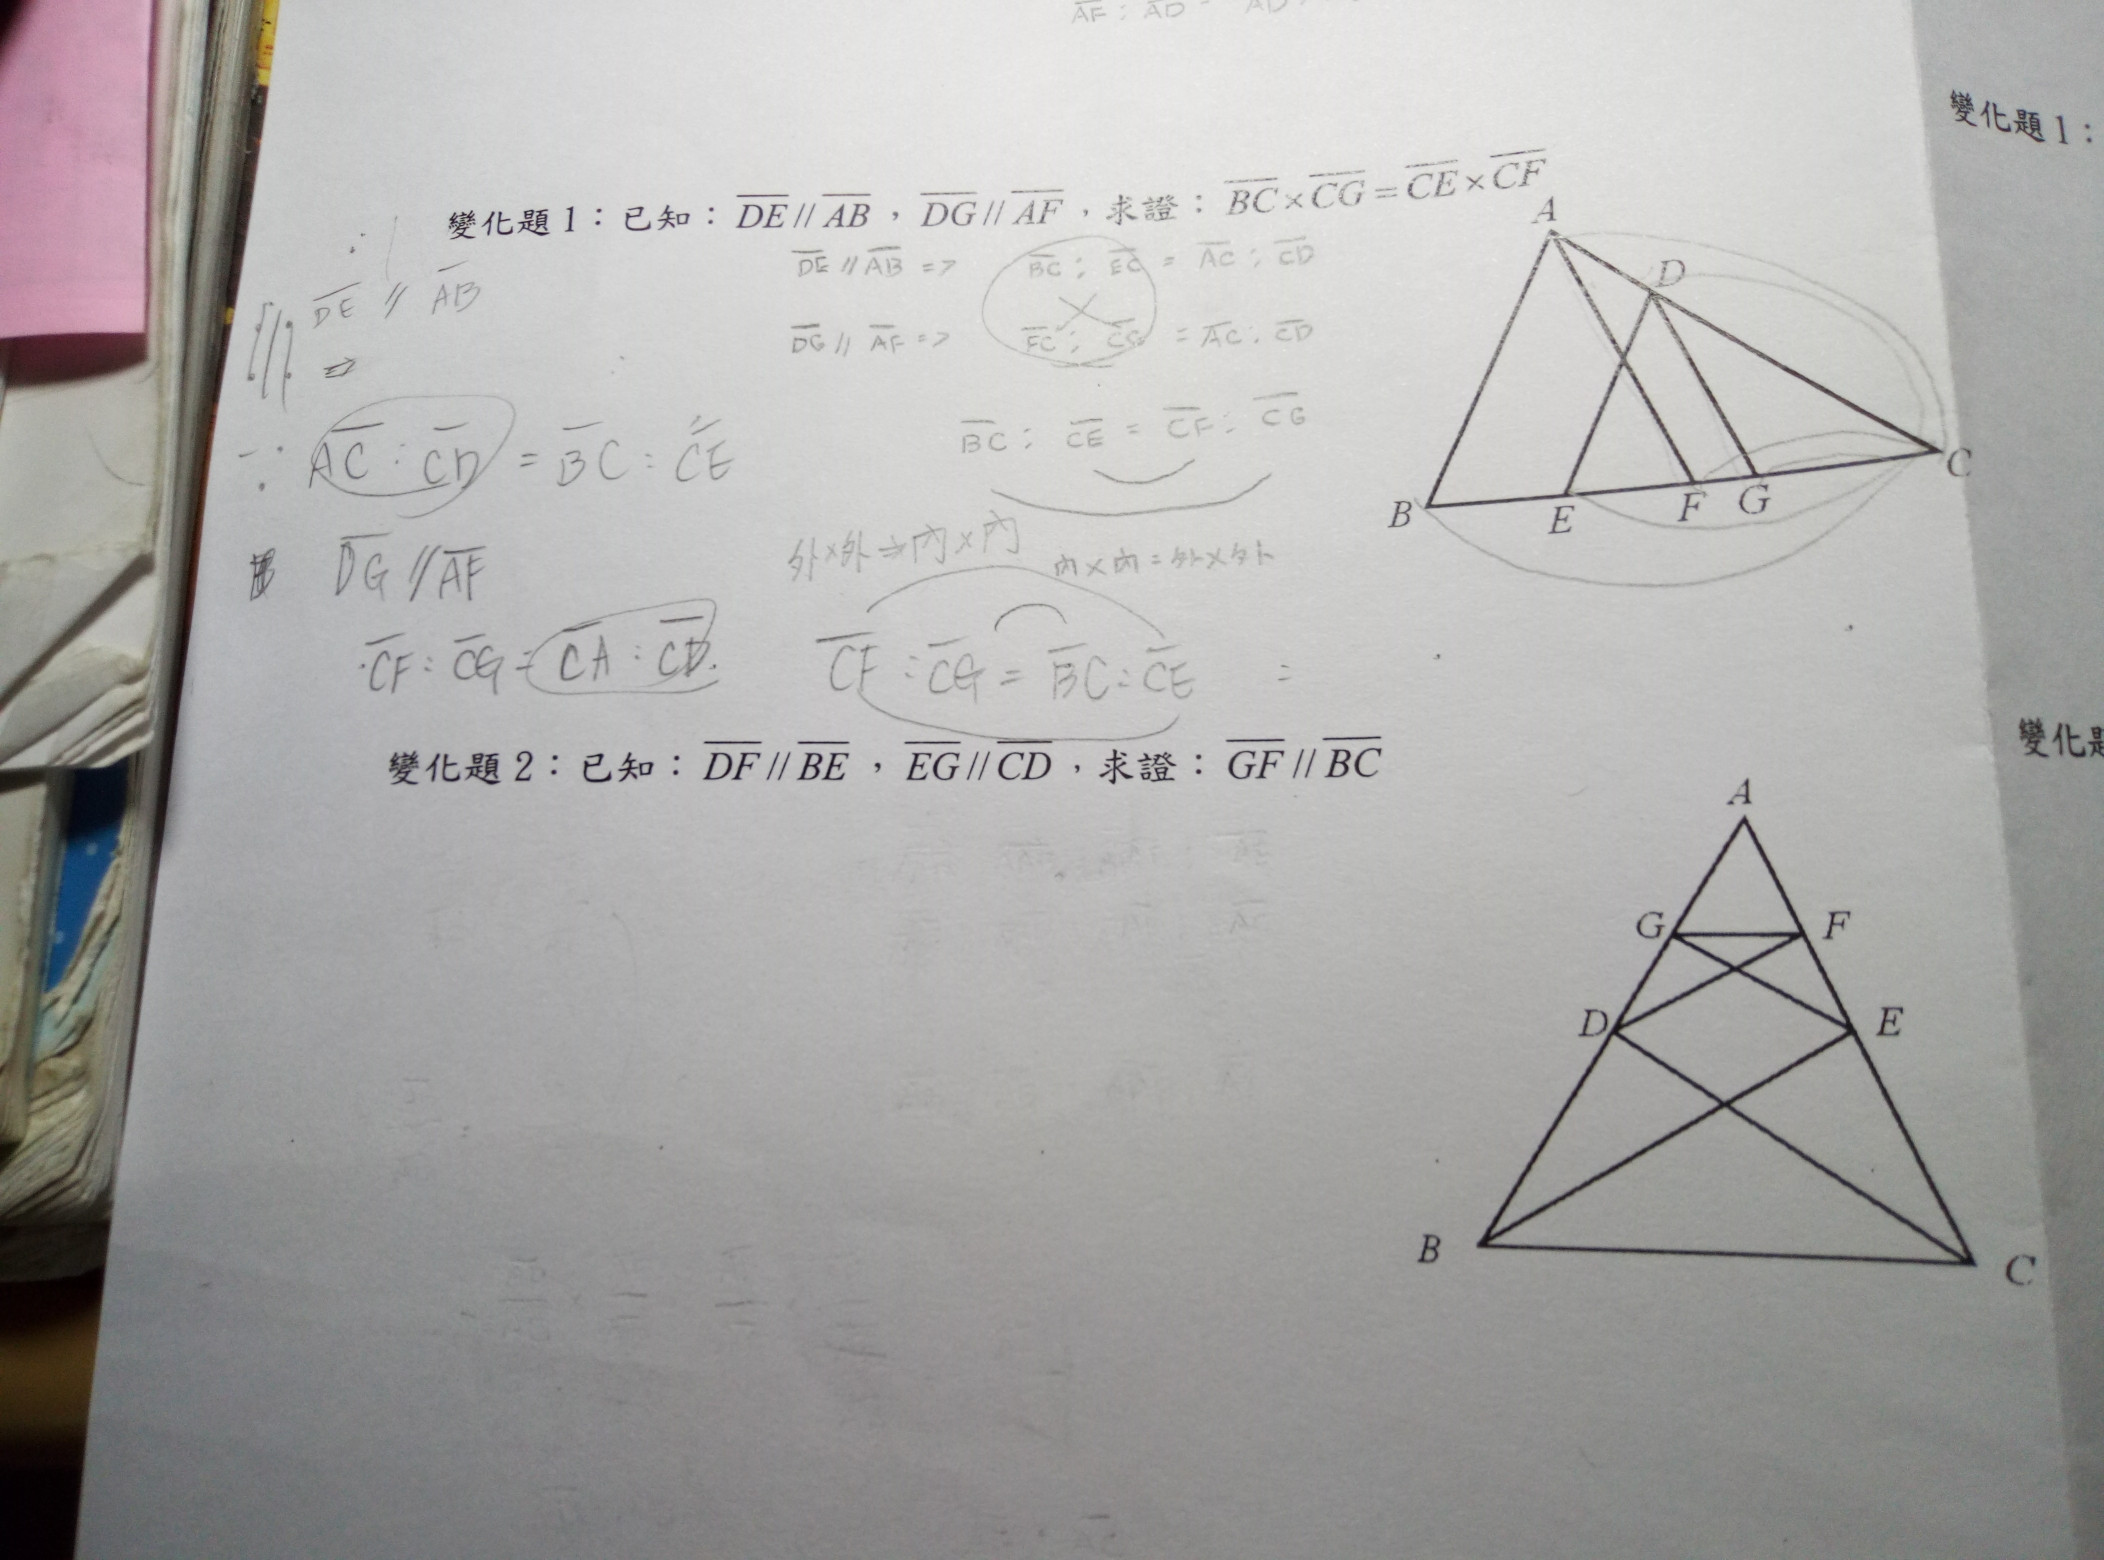 AF : AD = AD
變化題1：
變化題1：已知：DE // AB，DG // AF，求證：BC×CG=CE×CF
DE // AB => BC : EC = AC : CD
DE // AB
DG // AF => FC : CG = AC : CD
⇒
BC : CE = CF : CG
∵ AC : CD = BC : CE
外×外⇒內×內
內×內=外×外
DG // AF
CF : CG = CA : CD
CF : CG = BC : CE =
A
D
B
E
F
G
C
變化題2：已知：DF // BE，EG // CD，求證：GF // BC
變化題
A
G
F
D
E
B
C